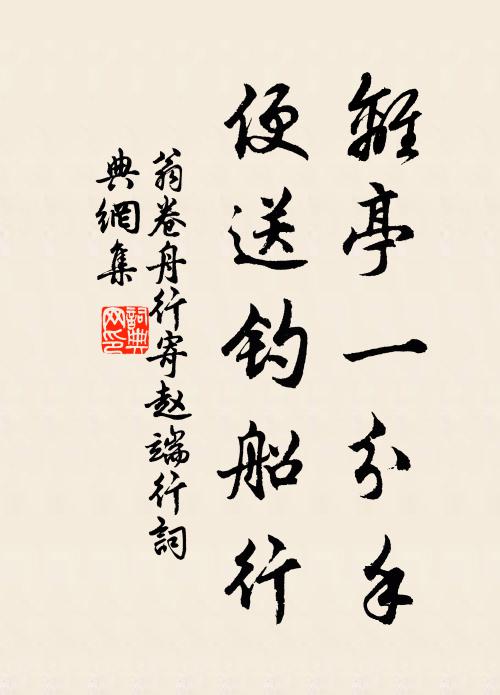 離亭一分手
便送釣船行
翁卷舟行寄赵端行詞
典網集
詞典
网印